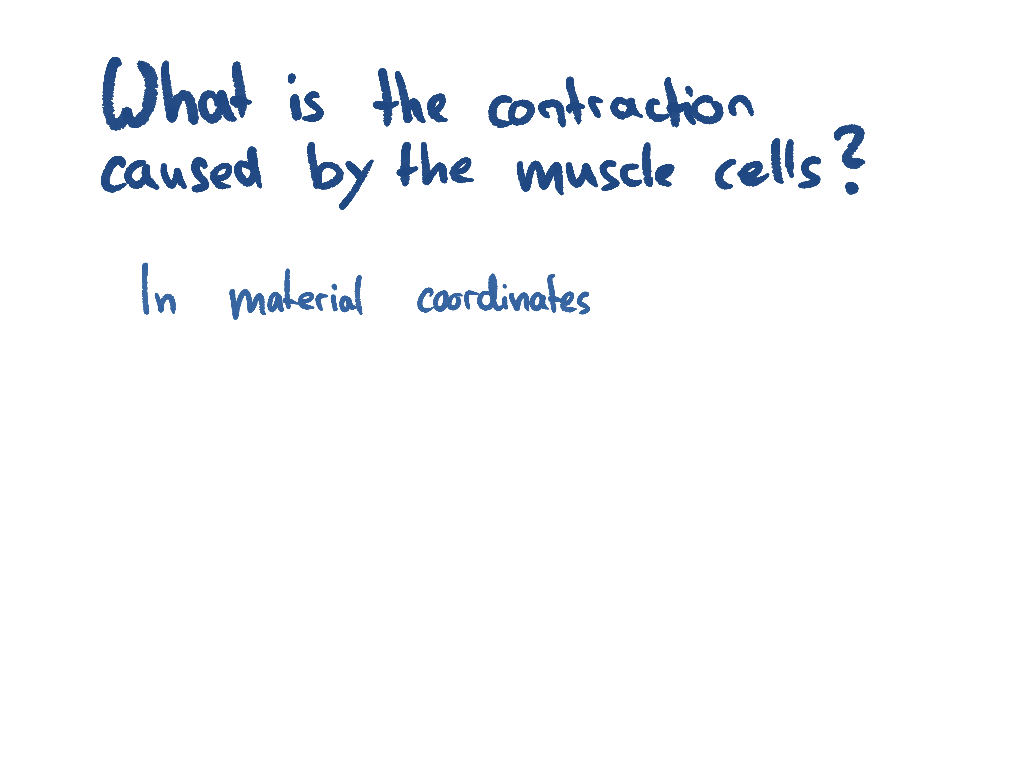 What is the contraction
caused by the muscle cells?
In material coordinates